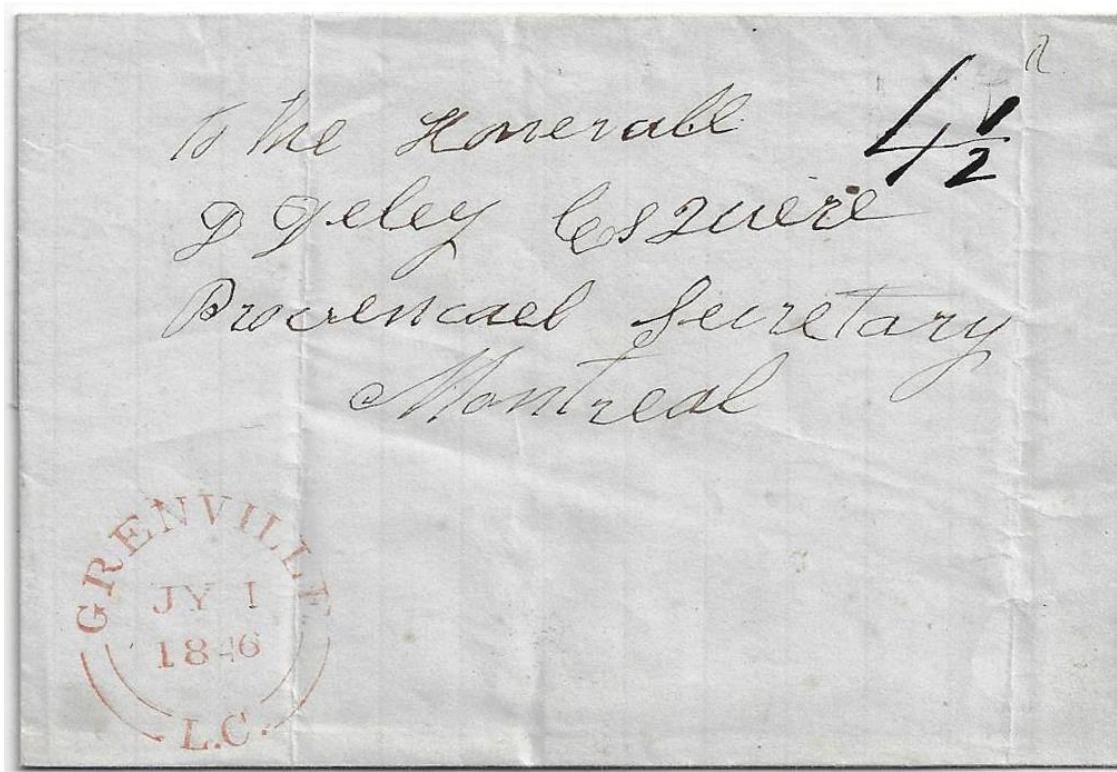 To the Honerable
4 1/2
D Deley Esquiere
Provencael Secretary
Montreal
GRENVILLE
JY 1
1846
L.C.